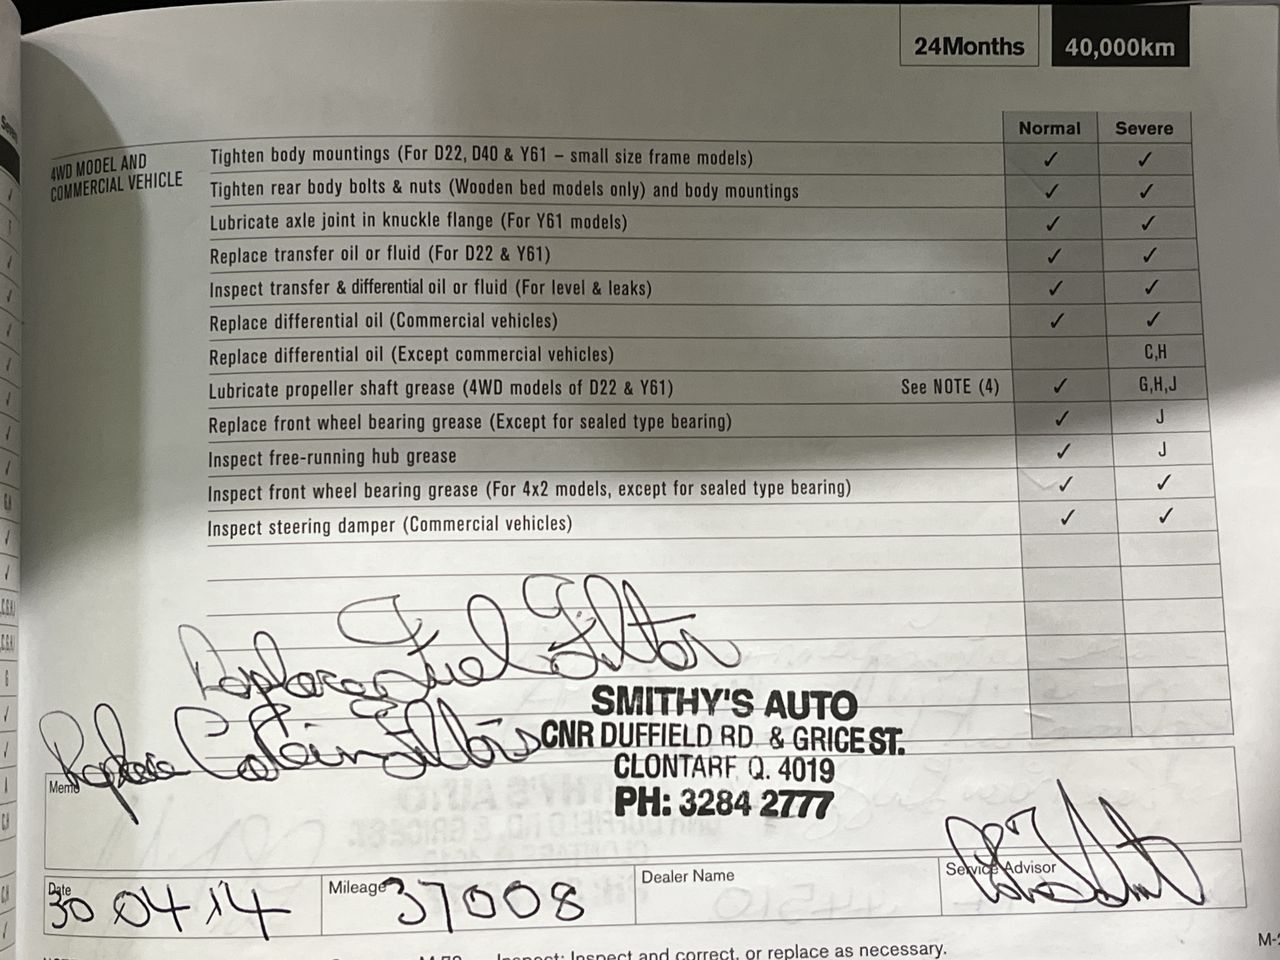 24Months 40,000km
Normal Severe
4WD MODEL AND
COMMERCIAL VEHICLE
Tighten body mountings (For D22, D40 & Y61 – small size frame models) ✓ ✓
Tighten rear body bolts & nuts (Wooden bed models only) and body mountings ✓ ✓
Lubricate axle joint in knuckle flange (For Y61 models) ✓ ✓
Replace transfer oil or fluid (For D22 & Y61) ✓ ✓
Inspect transfer & differential oil or fluid (For level & leaks) ✓ ✓
Replace differential oil (Commercial vehicles) ✓ ✓
Replace differential oil (Except commercial vehicles) C,H
Lubricate propeller shaft grease (4WD models of D22 & Y61) See NOTE (4) ✓ G,H,J
Replace front wheel bearing grease (Except for sealed type bearing) ✓ J
Inspect free-running hub grease ✓ J
Inspect front wheel bearing grease (For 4x2 models, except for sealed type bearing) ✓ ✓
Inspect steering damper (Commercial vehicles) ✓ ✓
Replace Fuel Filter
Replace Cabin Filters
SMITHY'S AUTO
CNR DUFFIELD RD. & GRICE ST.
CLONTARF Q. 4019
PH: 3284 2777
Memo
Date 30 04 14 Mileage 37008 Dealer Name Service Advisor
Inspect: Inspect and correct, or replace as necessary.